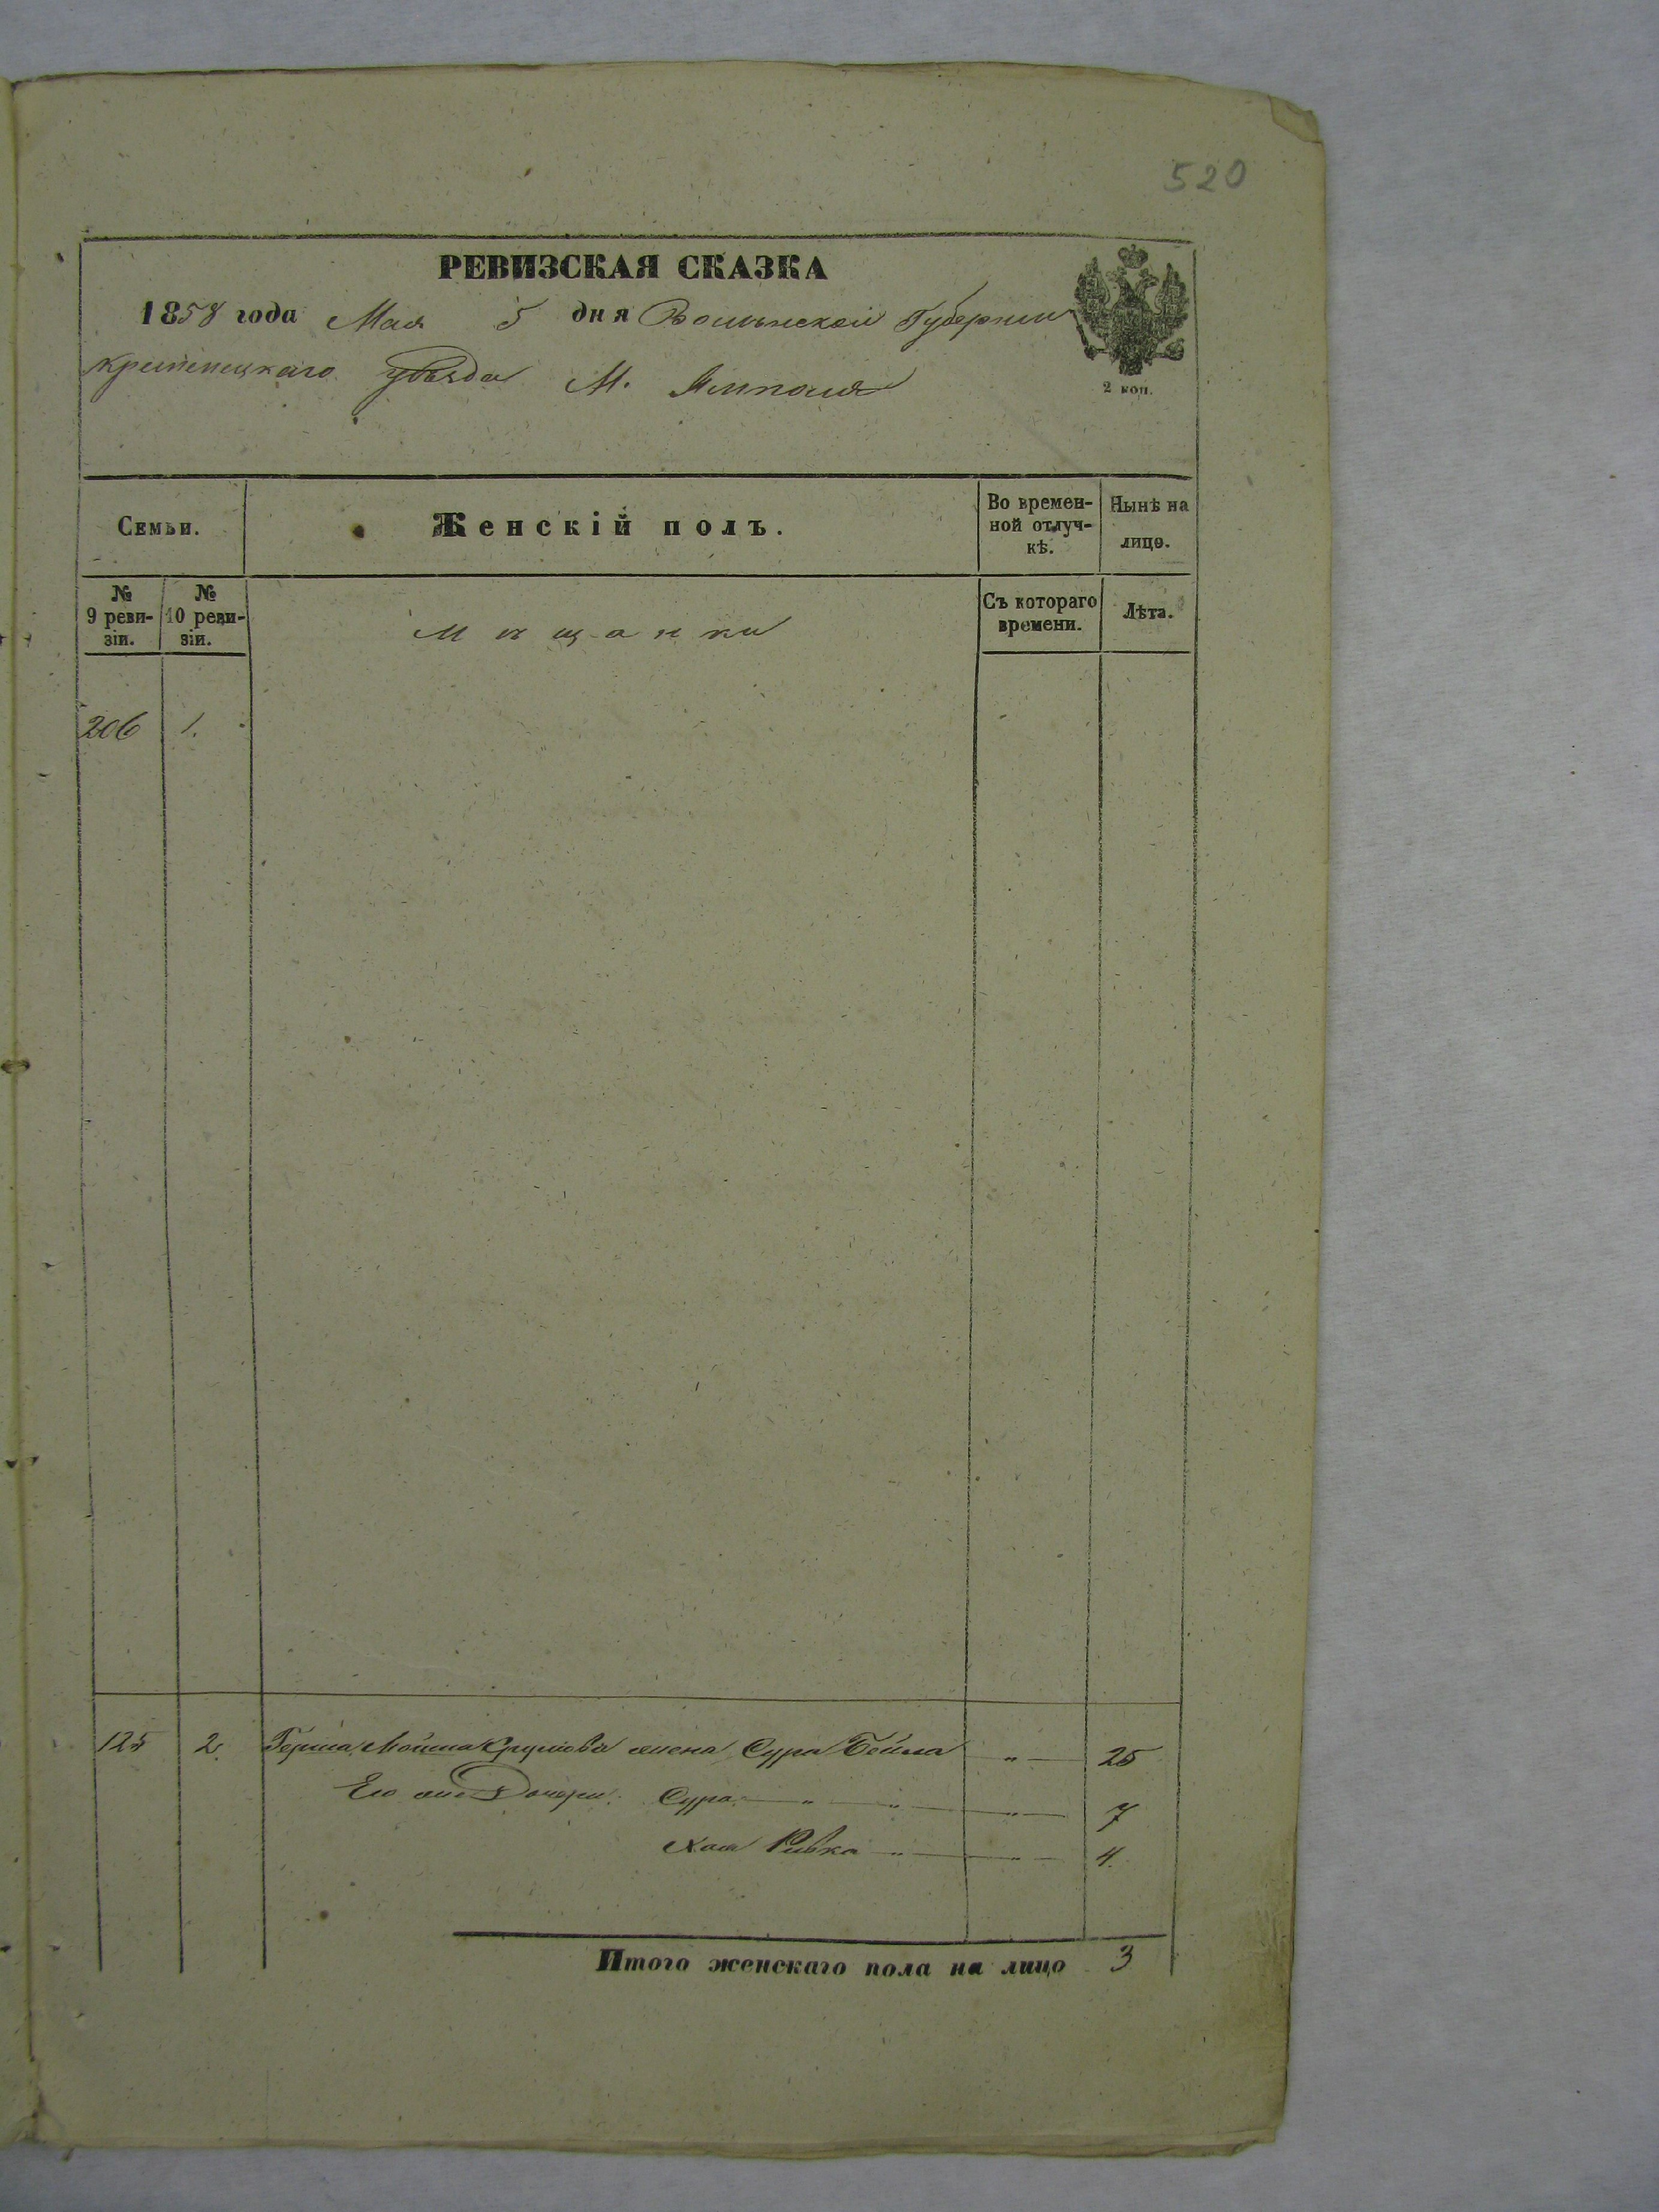 520
РЕВИЗСКАЯ СКАЗКА
1858 года Мая 5 дня Волынской Губернии
Кременецкаго уѣзда М. Ямполя
2 коп.
Семьи.
Женскій полъ.
Во времен-
ной отлуч-
кѣ.
Нынѣ на
лицо.
№
9 реви-
зіи.
№
10 реви-
зіи.
Мѣщанки
Съ котораго
времени.
Лѣта.
206 1.
125 2. Герша Мойша жена Сура Бейла " 25
Его же Дочери: Сура " " " 7
Хая Ривка " " 4.
Итого женскаго пола на лицо 3